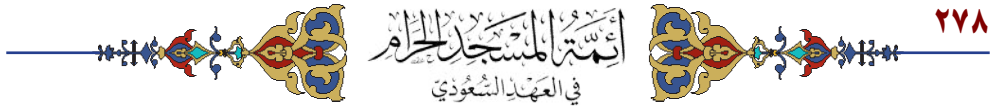 ٢٧٨
أَئِمَّةُ المَسْجِدِ الحَرَامِ
في العَهْدِ السُّعُودِيّ